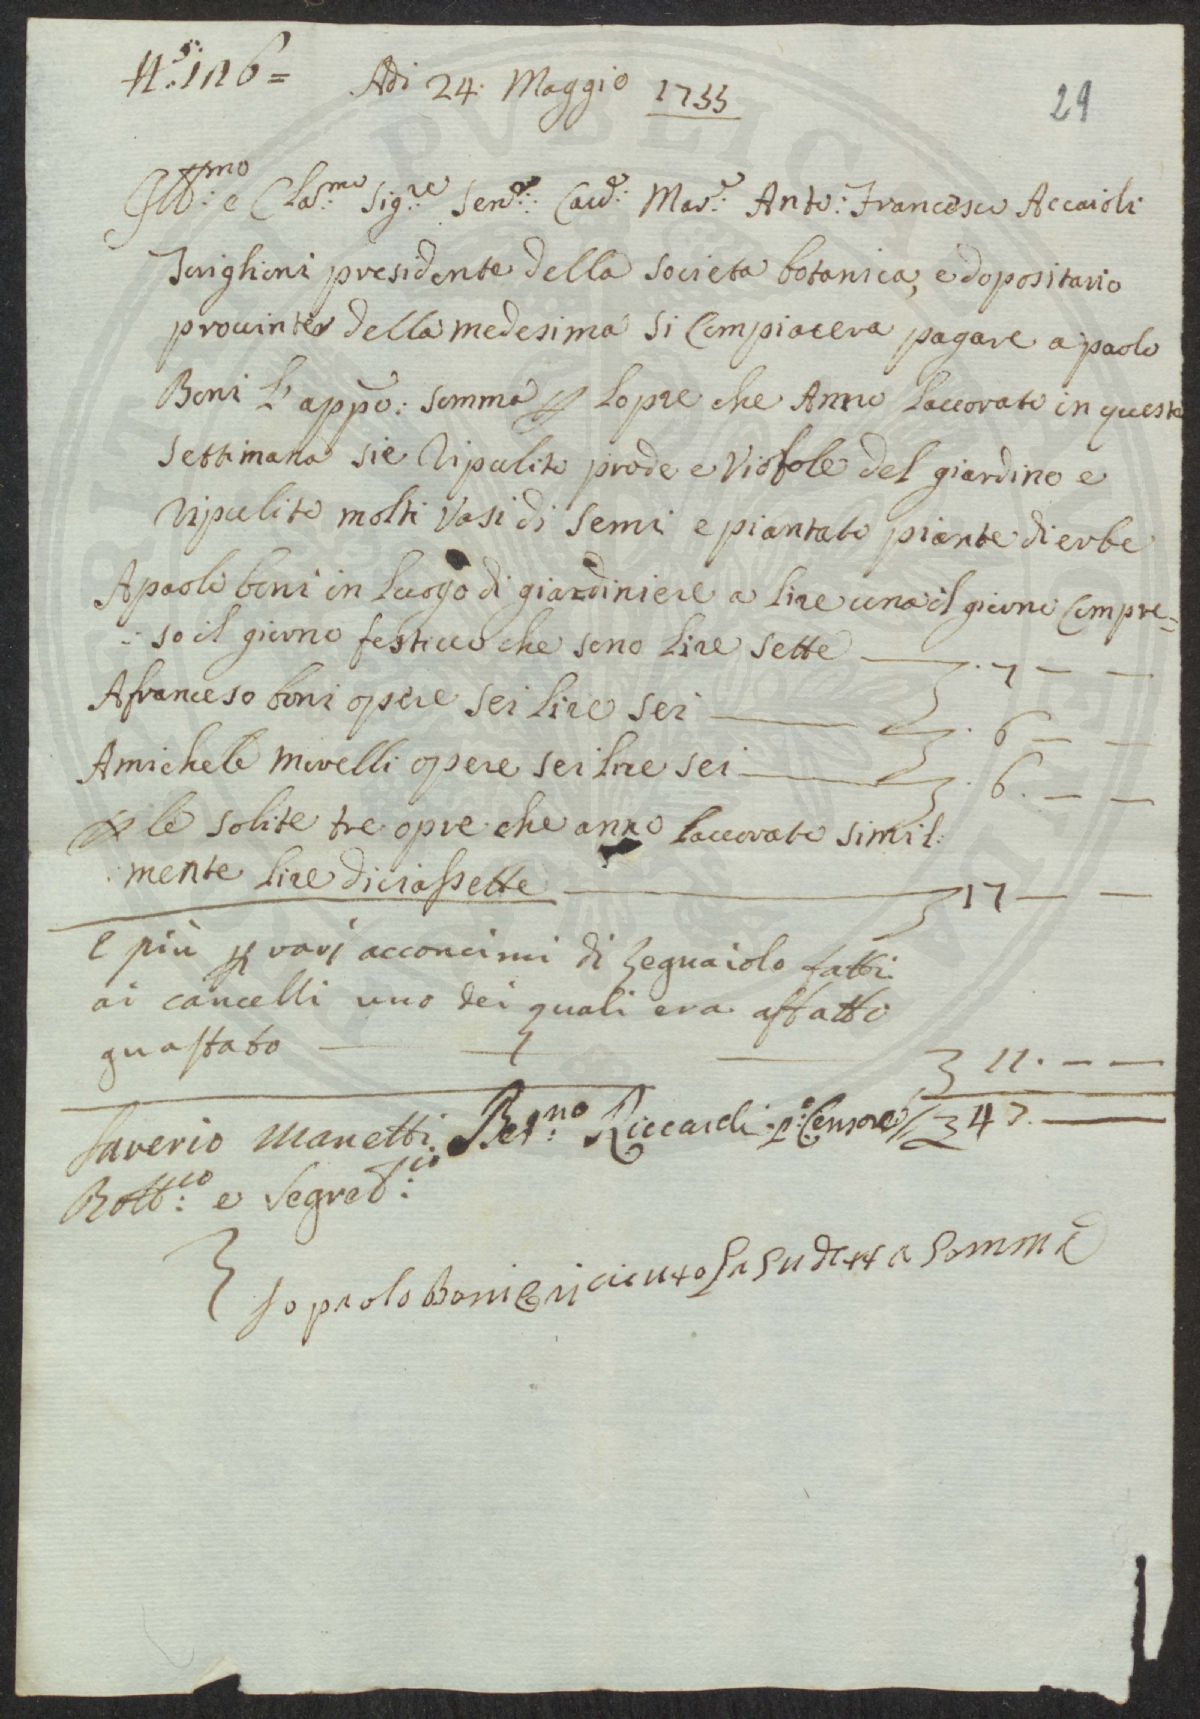 N.º 126 = Adi 24: Maggio 1755
29
Ill:mo e Cla:mo Sig:re Sen:re: Cau:e: Mar:e: Anto: Francesco Accaioli
Torighioni presidente della Societa botanica, e dopositario
prouinter della medesima si Compiacera pagare a paolo
Boni L' appo: somma p lopre che Anno Lauorato in questa
settimana sie Ripulito prode e Viotole del giardino e
Ripulito molti Vasi di Semi e piantato piante di erbe
A paolo boni in luogo di giardiniere a lire una il giorno Compre=
=so il giorno festiuo che sono Lire Sette 7 — —
A franceso boni opere sei lire sei 6 — —
A michele morelli opere sei lire sei 6. — —
p le solite tre opre che anno lauorato simil:
mente lire diciassette 17 — —
E più p varj acconcimi di Legnaiolo fatti
ai cancelli uno dei quali era affatto
guastato 11. — —
Saverio Manetti Ber:no Riccardi p:o Censore 47. —
Bott:co e Segret:rio
Io paolo Boni o riceuuto la sudetta somma